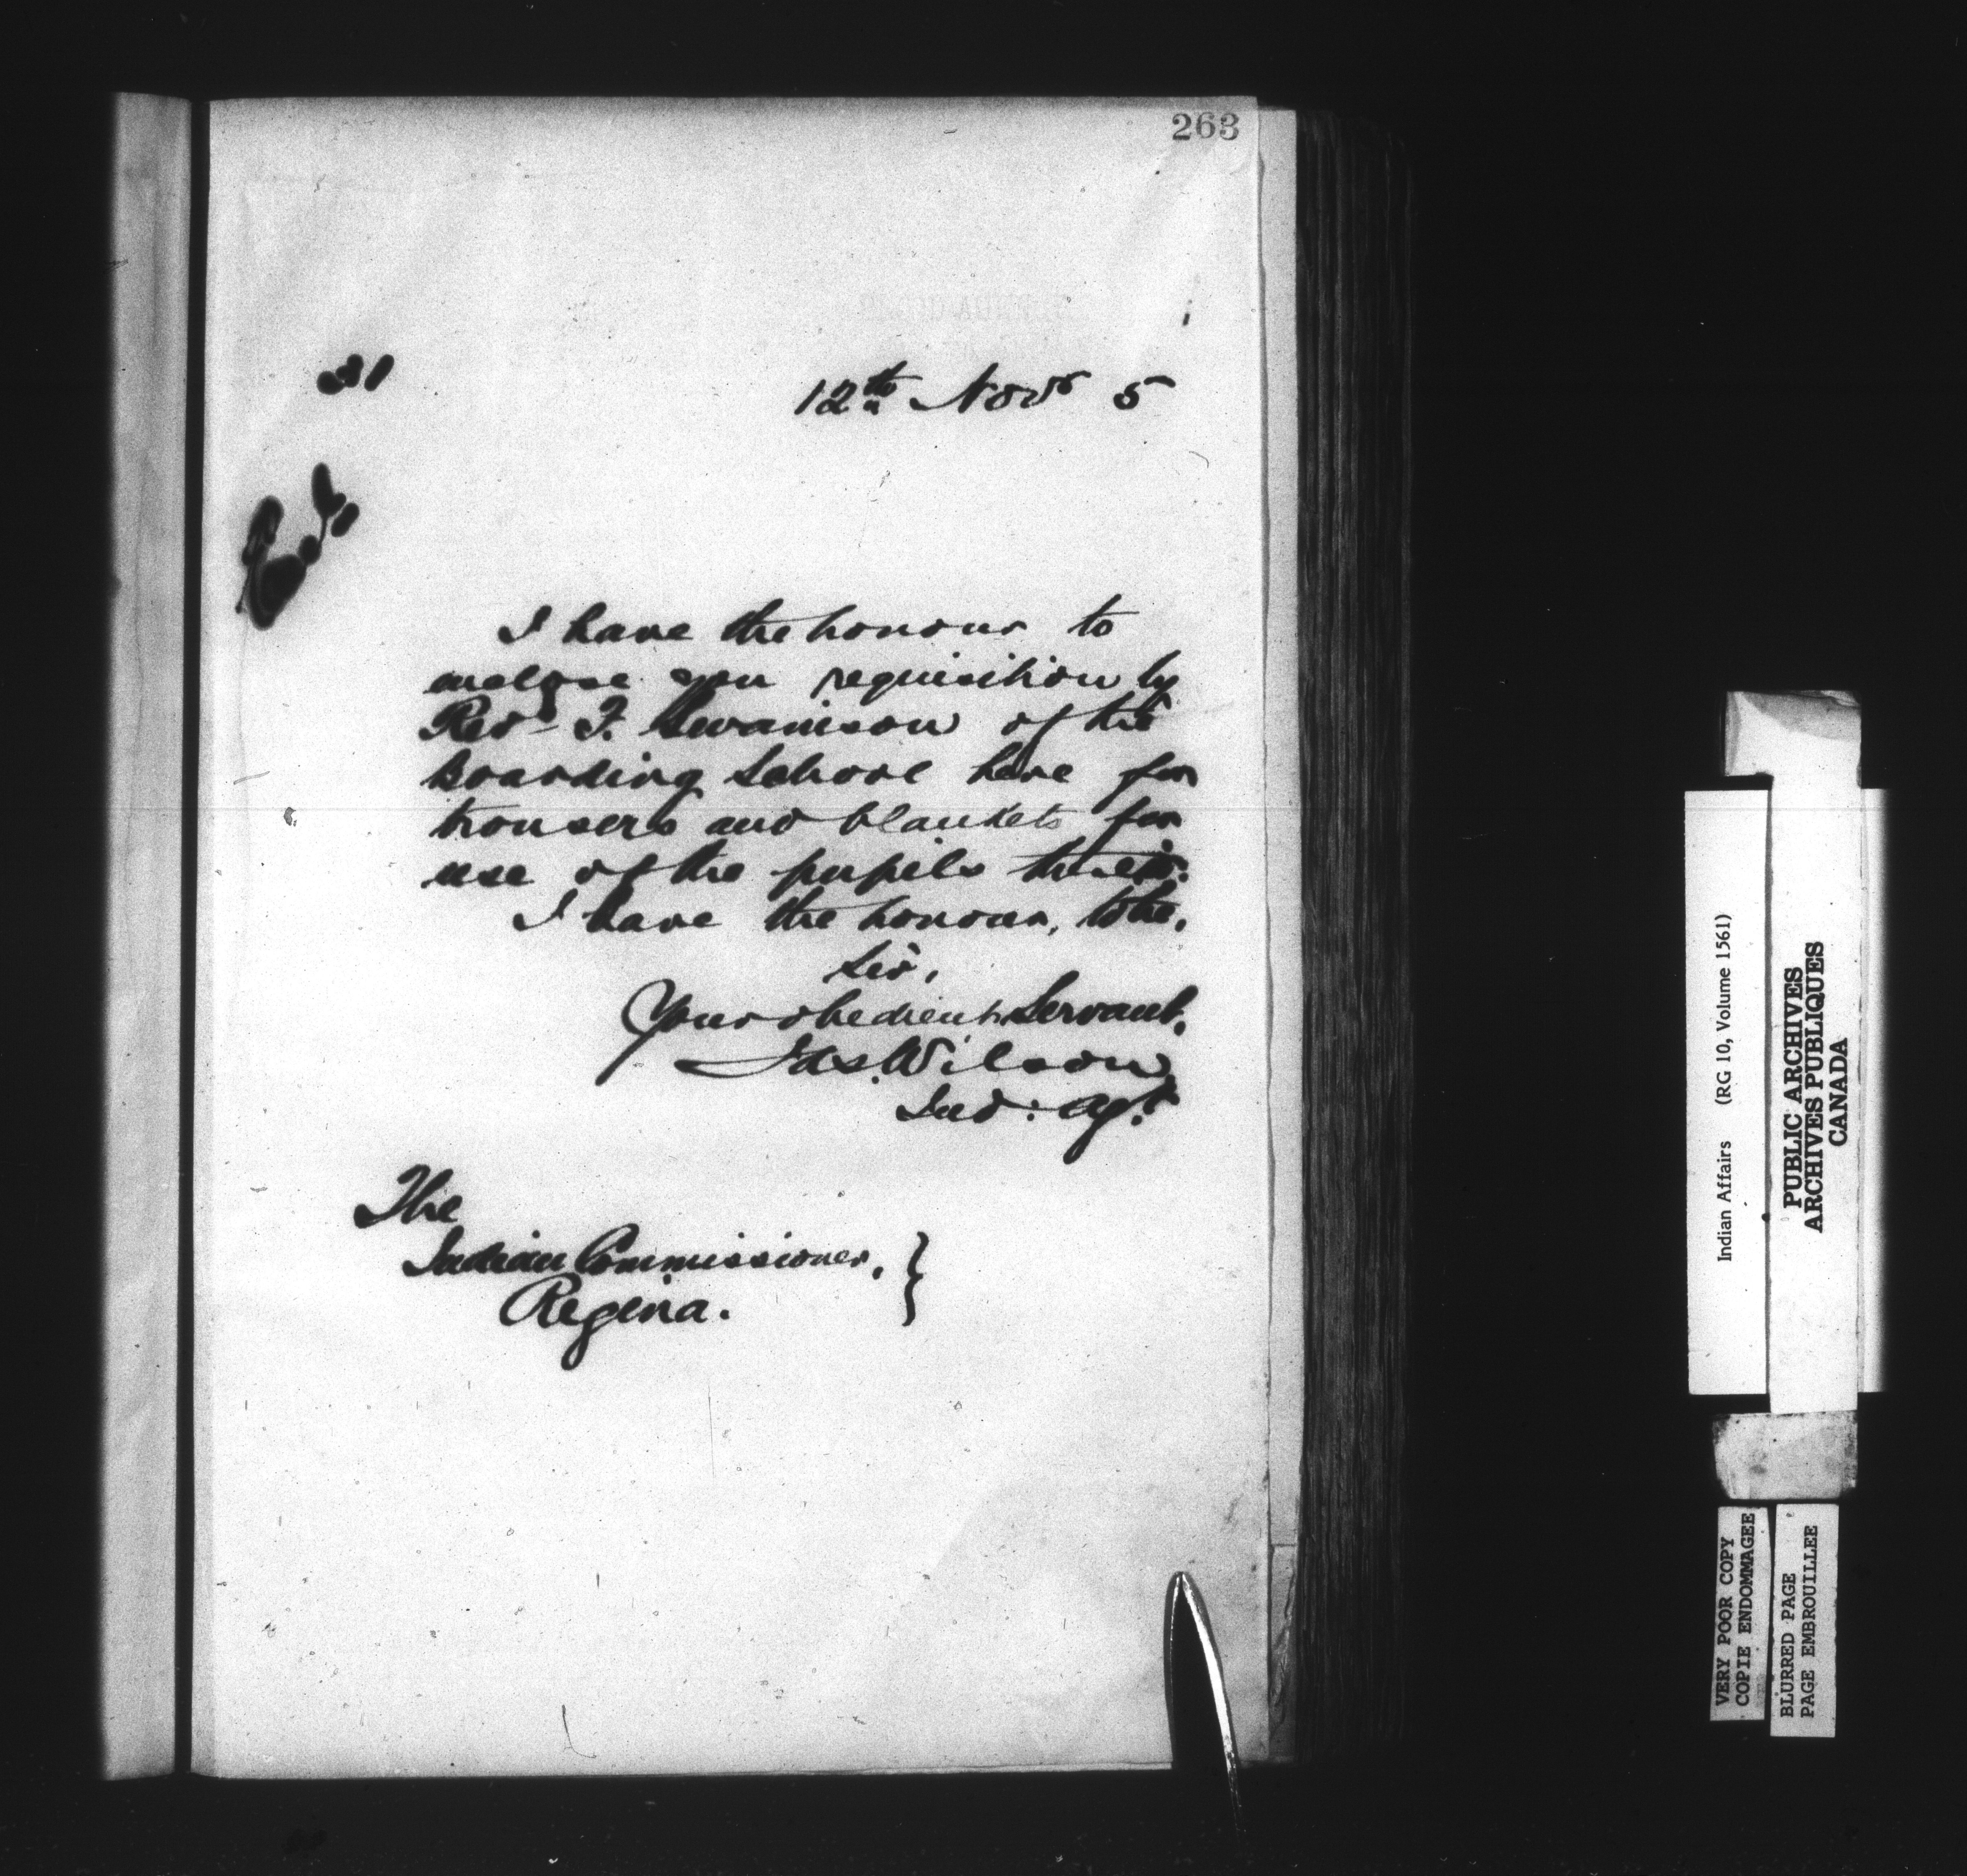 263
31
12th Novr 5
I have the honour to
enclose you requisition by
Revd F. Swainson of the
Boarding School here for
trousers and blankets for
use of the pupils therein.
I have the honour, to be,
Sir,
Your obedient Servant,
Jas. Wilson
Ind: Agt
The
Indian Commissioner,
Regina.
Indian Affairs (RG 10, Volume 1561)
PUBLIC ARCHIVES
ARCHIVES PUBLIQUES
CANADA
VERY POOR COPY
COPIE ENDOMMAGEE
BLURRED PAGE
PAGE EMBROUILLEE